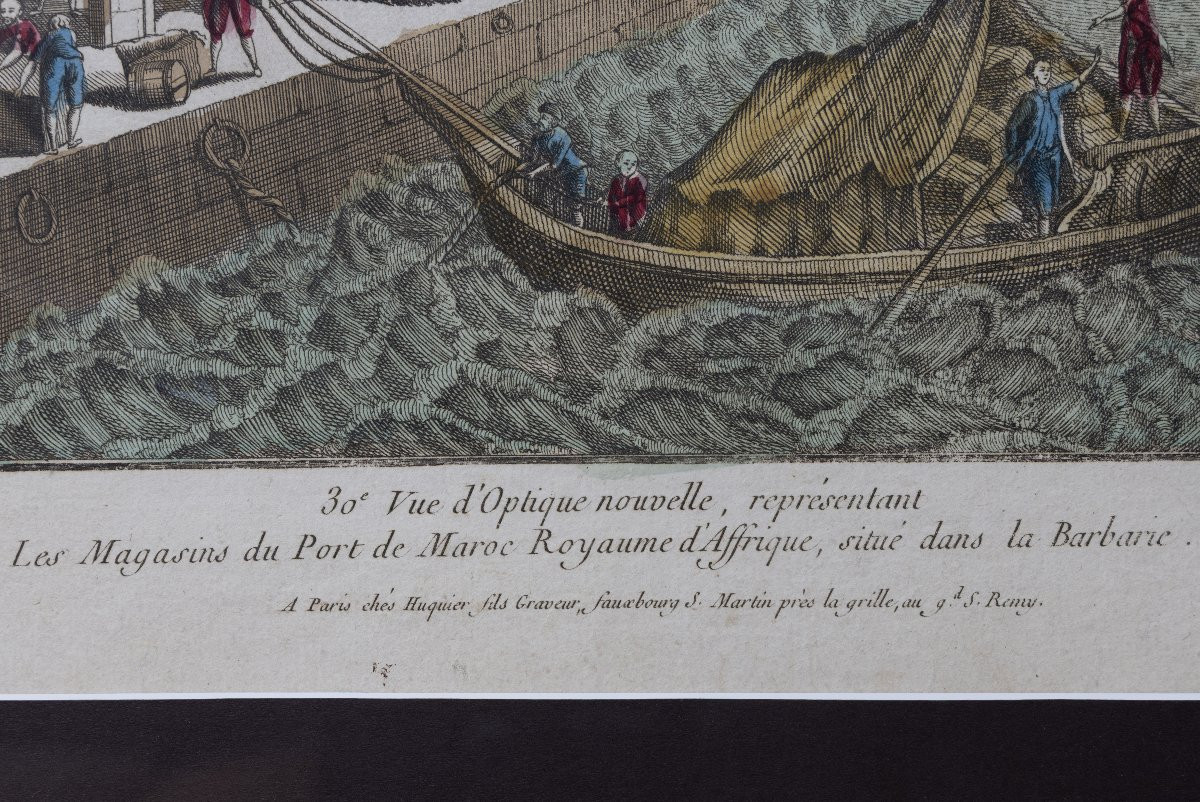 30e Vue d'Optique nouvelle, représentant
Les Magasins du Port de Maroc Royaume d'Affrique, situé dans la Barbarie.
A Paris chés Huquier fils Graveur, fauxbourg S. Martin près la grille, au gd. S. Remy.